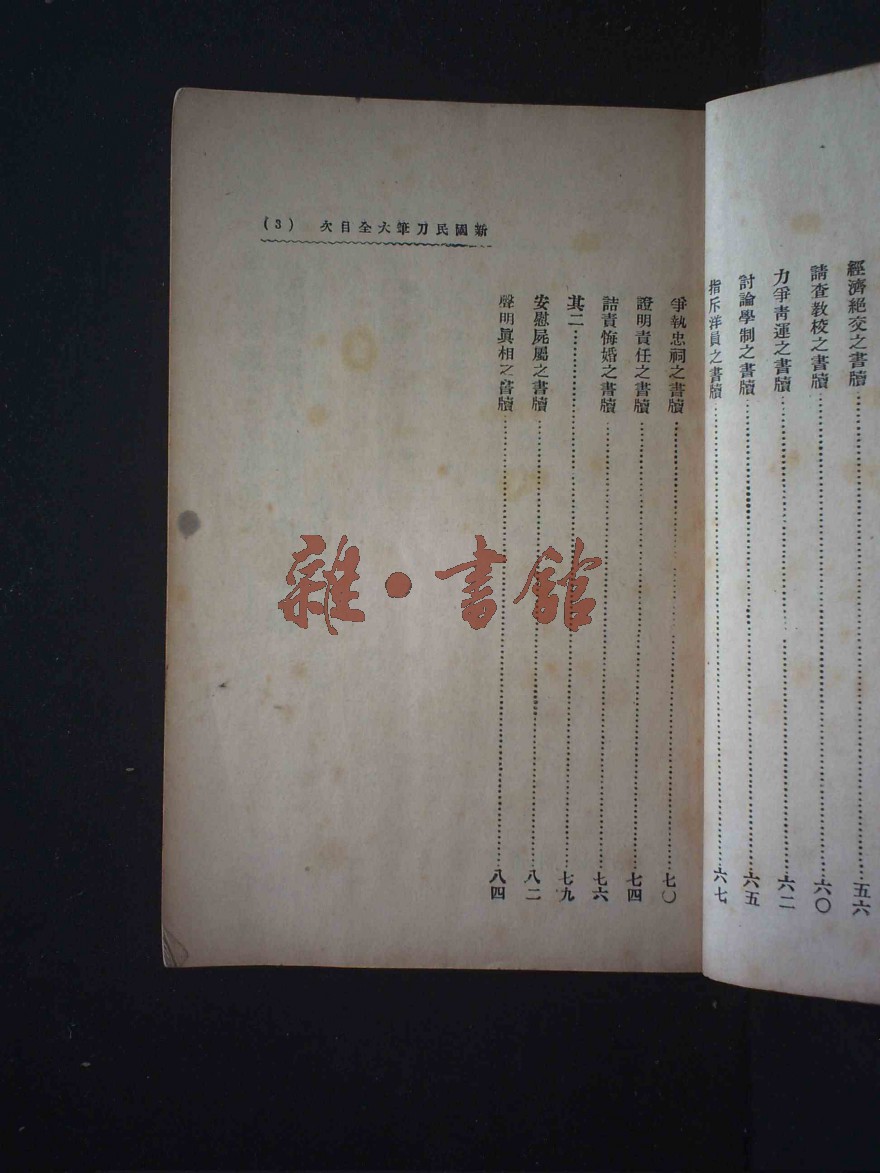 經濟絕交之書牘……五六
請查教校之書牘……六〇
力爭青運之書牘……六二
討論學制之書牘……六五
指斥洋員之書牘……六七
新國民刀筆大全目次 (3)
爭執忠祠之書牘……七〇
證明責任之書牘……七四
詰責悔婚之書牘……七六
其二……七九
安慰屍屬之書牘……八二
聲明眞相之書牘……八四
雜·書館